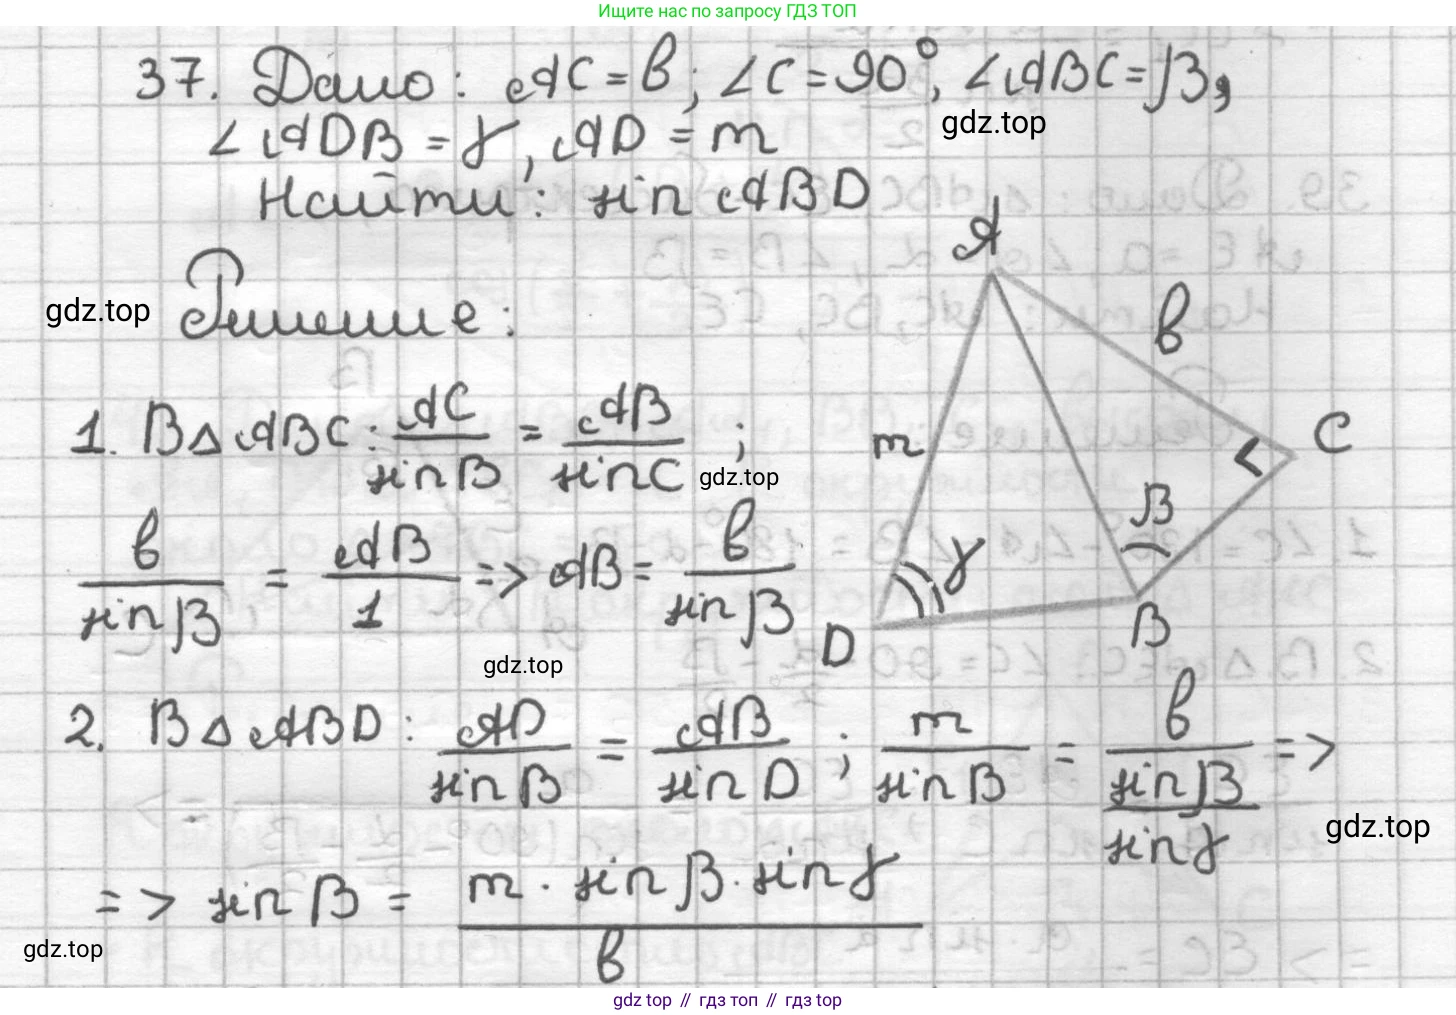 Ищите нас по запросу ГДЗ ТОП
37. Дано: AC = b; ∠C = 90°, ∠ABC = β,
gdz.top
∠ADB = γ, AD = m
Найти: sin ABD
A
gdz.top Решение:
b
1. В △ ABC: AC/sin B = AB/sin C ;
gdz.top
m
C
b/sin β = AB/1 => AB = b/sin β
β
γ
D
B
gdz.top
2. В △ ABD: AD/sin B = AB/sin D ; m/sin B = b/sin β/sin γ =>
gdz.top
=> sin B = m · sin β · sin γ/b
gdz.top
gdz top // гдз топ // гдз top